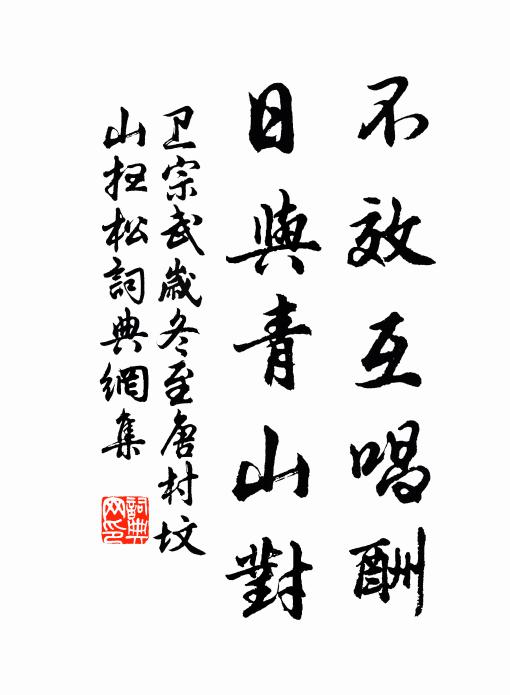 不效互唱酬
日與青山對
卫宗武歲冬至唐村坟
山抂松詞典網集
詞典
网印